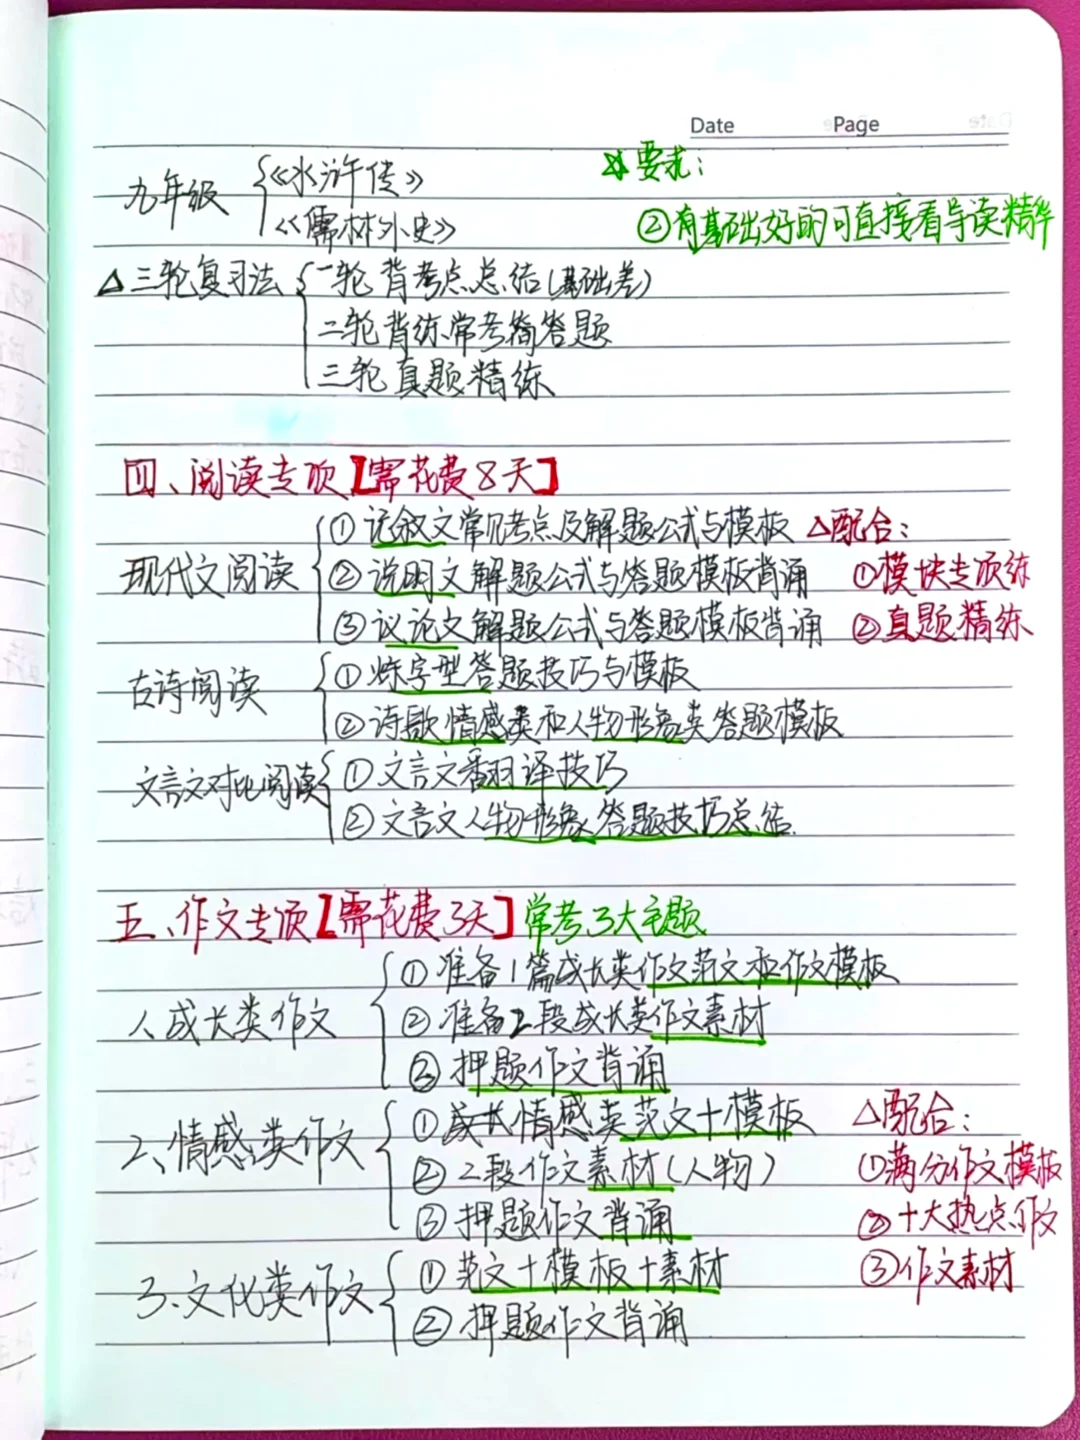 Date Page
☆要求：
九年级 《水浒传》
《儒林外史》
②有基础好的可直接看导读精华
△三轮复习法 一轮 背考点总结(基础差)
二轮 背练常考简答题
三轮 真题精练
四、阅读专项【需花费8天】
现代文阅读
①记叙文常见考点及解题公式与模板
②说明文解题公式与答题模板背诵
③议论文解题公式与答题模板背诵
△配合：
①模块专项练
②真题精练
古诗阅读
①炼字型答题技巧与模板
②诗歌情感类和人物形象类答题模板
文言文对比阅读
①文言文翻译技巧
②文言文人物形象答题技巧总结.
五、作文专项【需花费3天】常考3大主题
1.成长类作文
①准备1篇成长类作文范文和作文模板
②准备2段成长类作文素材
③押题作文背诵
2、情感类作文
①成长情感类范文+模板
②2段作文素材(人物)
③押题作文背诵
△配合：
①满分作文模板
②十大热点作文
③作文素材
3.文化类作文
①范文+模板+素材
②押题作文背诵